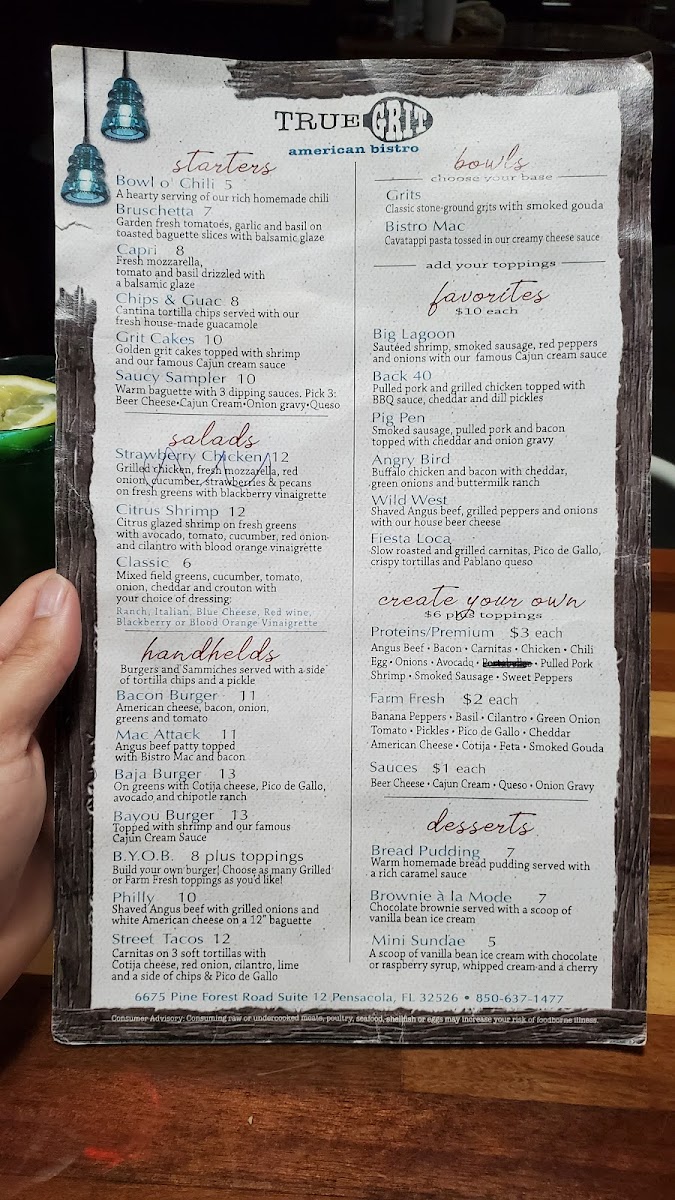 TRUE GRIT
american bistro
starters
Bowl o' Chili 5
A hearty serving of our rich homemade chili
Bruschetta 7
Garden fresh tomatoes, garlic and basil on
toasted baguette slices with balsamic glaze
Capri 8
Fresh mozzarella,
tomato and basil drizzled with
a balsamic glaze
Chips & Guac 8
Cantina tortilla chips served with our
fresh house-made guacamole
Grit Cakes 10
Golden grit cakes topped with shrimp
and our famous Cajun cream sauce
Saucy Sampler 10
Warm baguette with 3 dipping sauces. Pick 3:
Beer Cheese•Cajun Cream•Onion gravy•Queso
salads
Strawberry Chicken 12
Grilled chicken, fresh mozzarella, red
onion, cucumber, strawberries & pecans
on fresh greens with blackberry vinaigrette
Citrus Shrimp 12
Citrus glazed shrimp on fresh greens
with avocado, tomato, cucumber, red onion
and cilantro with blood orange vinaigrette
Classic 6
Mixed field greens, cucumber, tomato,
onion, cheddar and crouton with
your choice of dressing:
Ranch, Italian, Blue Cheese, Red wine,
Blackberry or Blood Orange Vinaigrette
handhelds
Burgers and Sammiches served with a side
of tortilla chips and a pickle
Bacon Burger 11
American cheese, bacon, onion,
greens and tomato
Mac Attack 11
Angus beef patty topped
with Bistro Mac and bacon
Baja Burger 13
On greens with Cotija cheese, Pico de Gallo,
avocado and chipotle ranch
Bayou Burger 13
Topped with shrimp and our famous
Cajun Cream Sauce
B.Y.O.B. 8 plus toppings
Build your own burger! Choose as many Grilled
or Farm Fresh toppings as you'd like!
Philly 10
Shaved Angus beef with grilled onions and
white American cheese on a 12" baguette
Street Tacos 12
Carnitas on 3 soft tortillas with
Cotija cheese, red onion, cilantro, lime
and a side of chips & Pico de Gallo
bowls
choose your base
Grits
Classic stone-ground grits with smoked gouda
Bistro Mac
Cavatappi pasta tossed in our creamy cheese sauce
add your toppings
favorites
$10 each
Big Lagoon
Sautéed shrimp, smoked sausage, red peppers
and onions with our famous Cajun cream sauce
Back 40
Pulled pork and grilled chicken topped with
BBQ sauce, cheddar and dill pickles
Pig Pen
Smoked sausage, pulled pork and bacon
topped with cheddar and onion gravy
Angry Bird
Buffalo chicken and bacon with cheddar,
green onions and buttermilk ranch
Wild West
Shaved Angus beef, grilled peppers and onions
with our house beer cheese
Fiesta Loca
Slow roasted and grilled carnitas, Pico de Gallo,
crispy tortillas and Pablano queso
create your own
$6 plus toppings
Proteins/Premium $3 each
Angus Beef • Bacon • Carnitas • Chicken • Chili
Egg • Onions • Avocado • • Pulled Pork
Shrimp • Smoked Sausage • Sweet Peppers
Farm Fresh $2 each
Banana Peppers • Basil • Cilantro • Green Onion
Tomato • Pickles • Pico de Gallo • Cheddar
American Cheese • Cotija • Feta • Smoked Gouda
Sauces $1 each
Beer Cheese • Cajun Cream • Queso • Onion Gravy
desserts
Bread Pudding 7
Warm homemade bread pudding served with
a rich caramel sauce
Brownie à la Mode 7
Chocolate brownie served with a scoop of
vanilla bean ice cream
Mini Sundae 5
A scoop of vanilla bean ice cream with chocolate
or raspberry syrup, whipped cream and a cherry
6675 Pine Forest Road Suite 12 Pensacola, FL 32526 • 850-637-1477
Consumer Advisory: Consuming raw or undercooked meats, poultry, seafood, shellfish or eggs may increase your risk of foodborne illness.